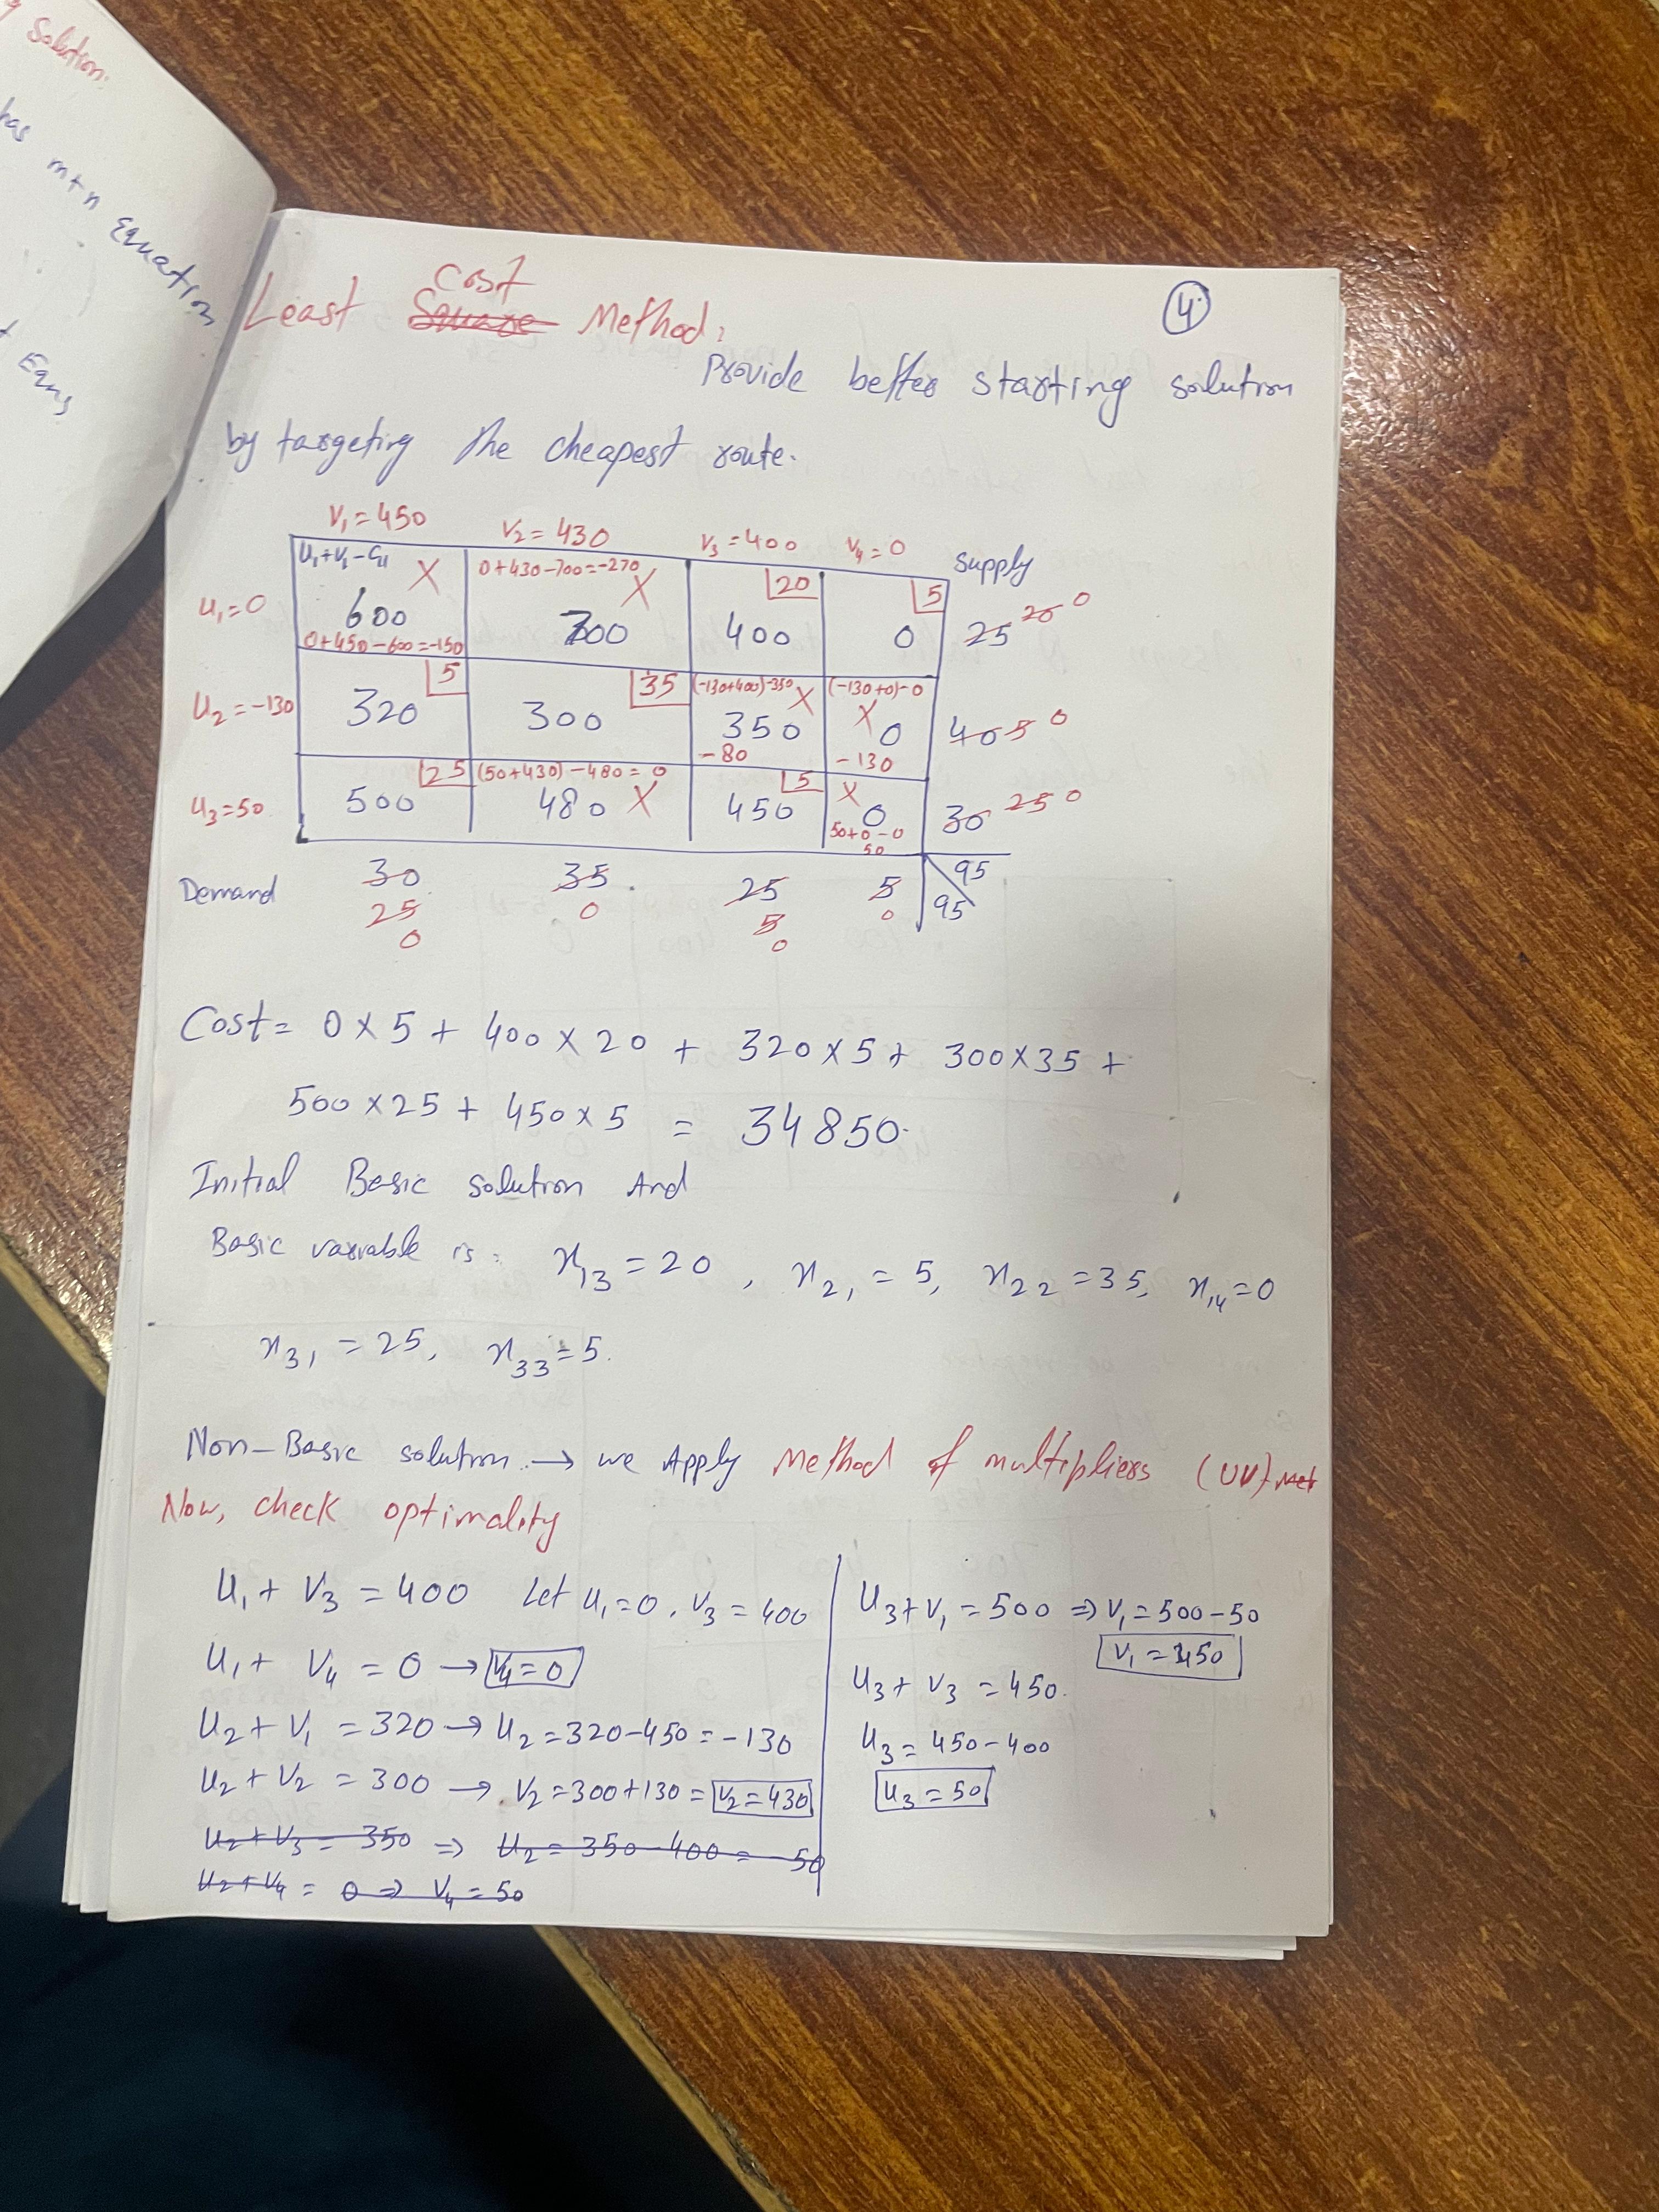 Solution:
has m+n Equation
Eqns
Least ~~Square~~ cost Method:
4
Provide better starting solution
by targeting the cheapest route.
V₁=450 V₂=430 V₃=400 V₄=0 Supply
U₁+V₁-C₁₁ X 0+430-700=-270 X 20 5
U₁=0 600 700 400 0 25 20 0
0+450-600=-150
5 35 (-130+400)-350 X (-130+0)-0
U₂=-130 320 300 350 X 0 40 5 0
-80 -130
25 (50+430)-480=0 5 X
U₃=50 500 480 X 450 0 30 25 0
50+0-0
50
Demand 30 35 25 5 95
25 0 5 0 95
0 0
Cost = 0×5 + 400×20 + 320×5 + 300×35 +
500×25 + 450×5 = 34850.
Initial Basic solution And
Basic variable is: x₁₃=20, x₂₁=5, x₂₂=35, x₁₄=0
x₃₁=25, x₃₃=5.
Non-Basic solution → we Apply Method of multipliers (UV) met
Now, check optimality
U₁+V₃=400 Let U₁=0, V₃=400
U₁+V₄=0 → V₄=0
U₂+V₁=320 → U₂=320-450=-130
U₂+V₂=300 → V₂=300+130= V₂=430
~~U₂+V₃=350~~ ⇒ ~~U₂=350-400=-50~~
~~U₂+V₄~~ = ~~0 ⇒ V₄=50~~
U₃+V₁=500 ⇒ V₁=500-50
V₁=450
U₃+V₃=450.
U₃=450-400
U₃=50